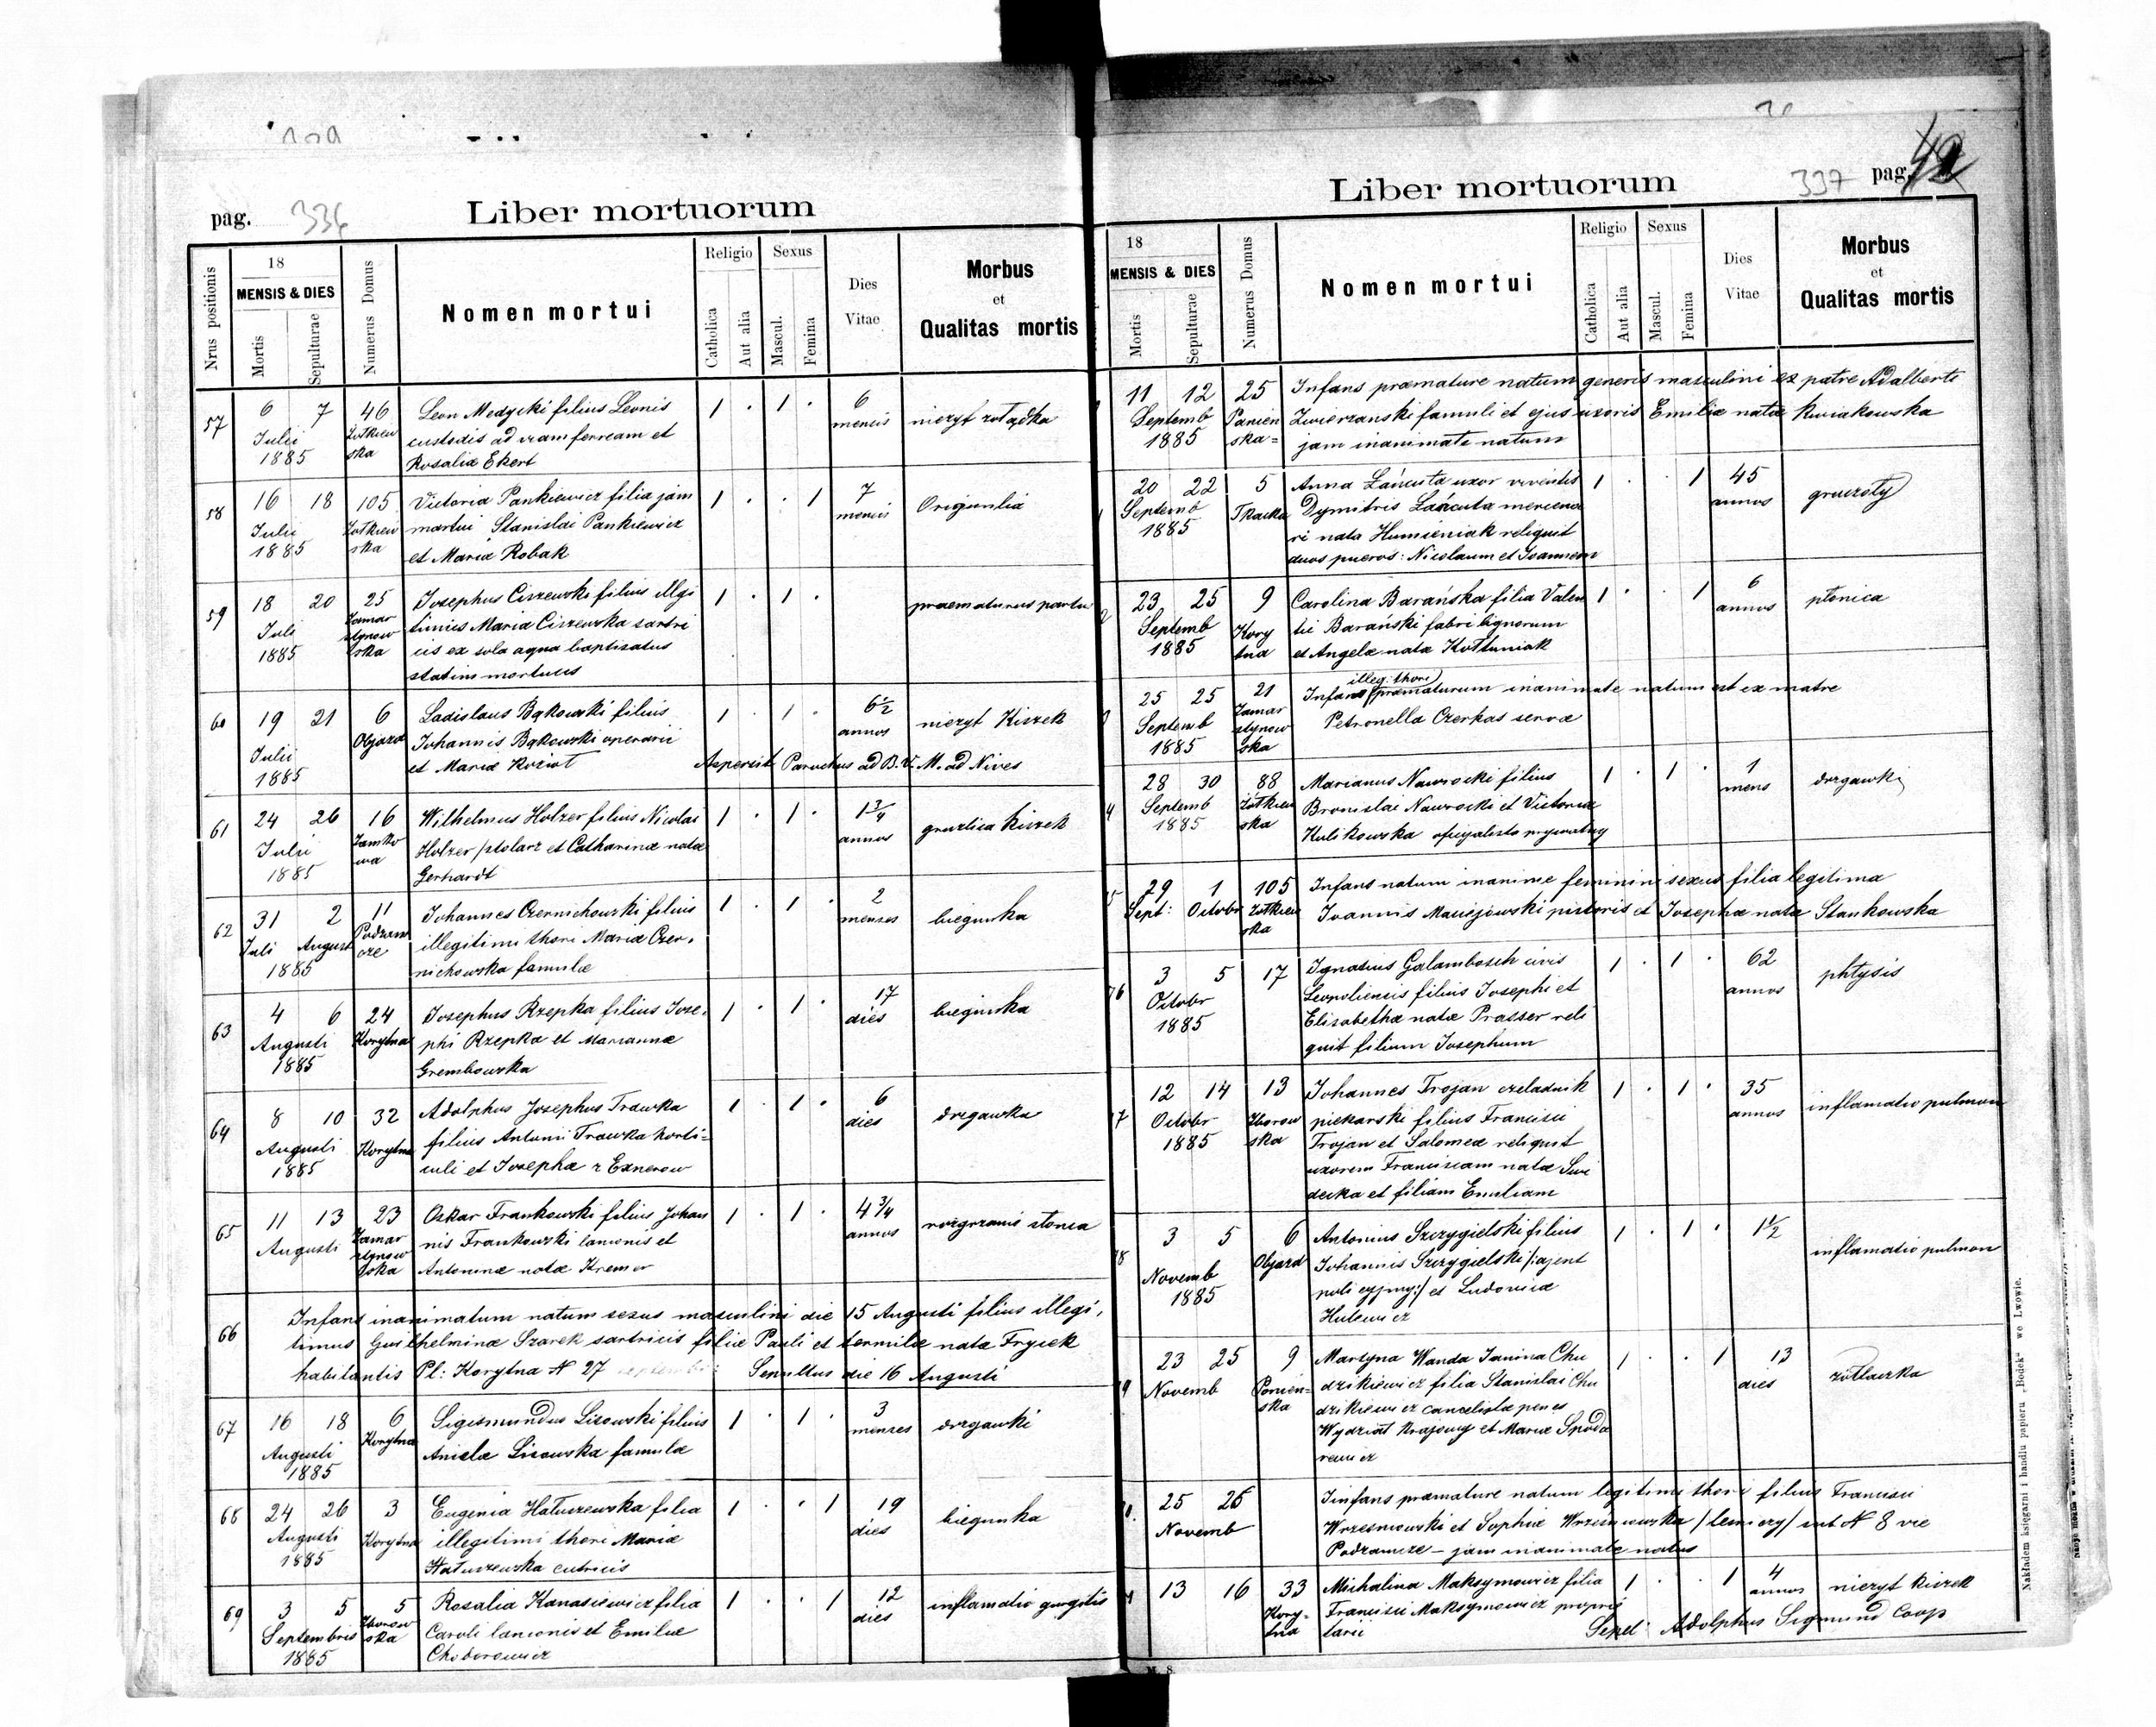 pag. 336
Liber mortuorum
Nrus positionis
18
MENSIS & DIES
Mortis
Sepulturae
Numerus Domus
Nomen mortui
Religio
Catholica
Aut alia
Sexus
Mascul.
Femina
Dies
Vitae
Morbus
et
Qualitas mortis
57 6 7 46 Leon Medycki filius Leonis 1 . 1 . 6 nieżyt żołądka
Julii Żołkiew custodis ad viam ferream et mensis
1885 ska Rosalia Ekert
58 16 18 105 Victoria Pankiewicz filia jam 1 . . 1 7
Julii Żołkiew mortui Stanislai Pankiewicz mensis
1885 ska et Maria Robak
59 18 20 25 Josephus Ciszewski filius illgi 1 . 1 . praematurus partus
Juli Zamar timus Maria Ciszewska sartri
1885 stynow cis ex sola aqua baptisatus
ska statim mortuus
60 19 21 6 Ladislaus Bąkowski filius 1 . 1 . 6½ nieżyt Kiszek
Julii Objazd Johannis Bąkowski operarii annos
1885 et Maria Kozioł Aspersit Parochus ad B. V. M. ad Nives
61 24 26 16 Wilhelmus Holzer filius Nicolai 1 . 1 . 1¾ gruzlica kiszek
Julii Zamko Holzer /stolarz et Catharinæ nata annos
1885 wa Gerhardt
62 31 2 11 Johannes Czernichowski filius 1 . 1 . 2 biegunka
Juli August Podzam illegitimi thori Maria Czer, menses
1885 cze nichowska famulæ
63 4 6 24 Josephus Rzepka filius Jose, 1 . 1 . 17 biegunka
Augusti Korytna phi Rzepka et Mariannæ dies
1885 Grembowska
64 8 10 32 Adolphus Josephus Trawka 1 . 1 . 6 drgawka
Augusti Korytna filius Antoni Trawka horti= dies
1885 culi et Josepha z Exnerow
65 11 13 23 Oskar Frankowski filius Johan 1 . 1 . 4¾
Augusti Zamar nis Frankowski lanionis et annos
stynow Antoninæ nata Kremer
ska
66 Infans inanimatum natum sexus masculini die 15 Augusti filius illegi,
timus Guilhelminæ Szarek sartricis filiæ Pauli et
habitantis Pl: Korytna N 27 Sepultus die 16 Augusti
67 16 18 6 Sigismundus Lisowski filius 1 . 1 . 3 drgawki
Augusti Korytna Anielæ Lisowska famulæ menses
1885
68 24 26 3 Eugenia Hałuszewska filia 1 . . 1 19 biegunka
Augusti Korytna illegitimi thori Maria dies
1885 Hałuszewska
69 3 5 5 Rosalia Kanasiewicz filia 1 . . 1 12 inflamatio
Septembris Zborow Caroli lanionis et Emiliæ dies
1885 ska Chodorowicz
337 pag. 42
Liber mortuorum
18
MENSIS & DIES
Mortis
Sepulturae
Numerus Domus
Nomen mortui
Religio
Catholica
Aut alia
Sexus
Mascul.
Femina
Dies
Vitae
Morbus
et
Qualitas mortis
11 12 25 Infans præmature natum generis masculini ex patre Adalberto
Septemb Panień Zwierzanski famuli et ejus uxoris Emiliæ nata Kwiakowska
1885 ska= jam inanimate natum
20 22 5 Anna Łańcuta uxor viventis 1 . . 1 45 gruczoły
Septemb Tkacka Dymitris Łańcuta mercena annos
1885 ri nata Humieniak reliquit
duos pueros: Nicolaum et Joannem
23 25 9 Carolina Barańska filia Valen 1 . . 1 6 płonica
Septemb Kory tii Barański fabri lignorum annos
1885 tna et Angelæ nata Kołtuniak
illeg. thori
25 25 21 Infans præmaturum inanimate natum est ex matre
Septemb Zamar Petronella Czerkas serva
1885 stynow
ska
28 30 88 Marianus Nawrocki filius 1 . 1 . 1 drgawki
Septemb Żółkiew Bronislai Nawrocki et Victoriæ mens
1885 ska Kulikowska oficyalista prywatny
29 1 105 Infans natum inanime feminini sexus filia legitima
Sept: Octobr Żołkiew Joannis Maciejowski pistoris et Josephæ nata Stankowska
ska
76 3 5 17 Ignatius Galambosch civis 1 . 1 . 62 phtysis
Octobr Leopoliensis filius Josephi et annos
1885 Elisabethæ nata Prasser reli
quit filium Josephum
12 14 13 Johannes Trojan czeladnik 1 . 1 . 35 inflamatio pulmon
Octobr Zborow piekarski filius Francisci annos
1885 ska Trojan et Salomea reliquit
uxorem Franciscam nata Swi
decka et filiam Emiliam
3 5 6 Antonius Szczygielski filius 1 . 1 . 1½ inflamatio pulmon
Novemb Objazd Johannis Szczygielski /:ajent
1885 policyjny:/ et Ludovica
Hulewicz
23 25 9 Martyna Wanda Janina Chu 1 . . 1 13 żółtaczka
Novemb Panień= dzikiewicz filia Stanislai Chu dies
ska dzikiewicz cancelista penes
Wydział Krajowy et Maria
25 26 Infans præmature natum legitimi thori filius Francisci
Novemb Wrzesniowski et Sophiæ Wrzesniowska sub N 8 vie
Podzamcze – jam inanimate natus
13 16 33 Michalina Maksymowicz filia 1 . . 1 4 nieżyt kiszek
Kory- Francisci Maksymowicz proprie annos
tna tarii Sepel: Adolphus Sigmund Coop
M. 8.
Nakładem księgarni i handlu papieru „Bodek“ we Lwowie.